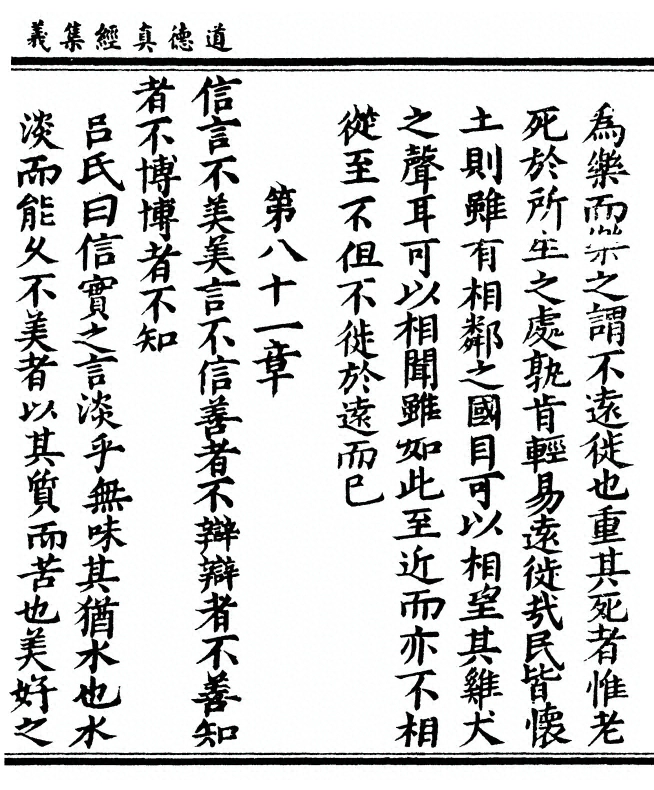 道德真經集義
為樂而樂之謂不遠徙也重其死者惟老
死於所生之處孰肯輕易遠徙哉民皆懷
土則雖有相鄰之國目可以相望其雞犬
之聲耳可以相聞雖如此至近而亦不相
從至不但不徙於遠而已
第八十一章
信言不美美言不信善者不辯辯者不善知
者不博博者不知
呂氏曰信實之言淡乎無味其猶水也水
淡而能久不美者以其質而苦也美好之